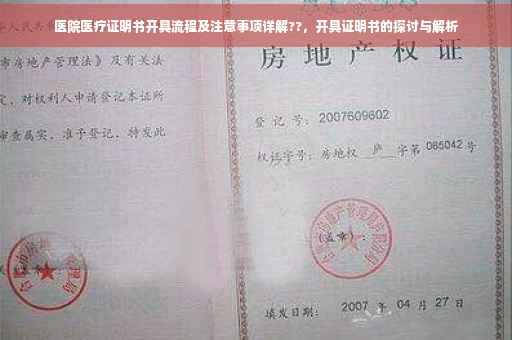 医院医疗证明书开具流程及注意事项详解??，开具证明书的探讨与解析
华人民共和
市房地产管理法》及有关法
定，对权利人申请登记本证所
审查属实，准予登记，特发此
房地产权证
登记号：2007609602
权证字号：房地权 庐 字第 065042 号
(盖章)：
填发日期：2007 年 04 月 27 日